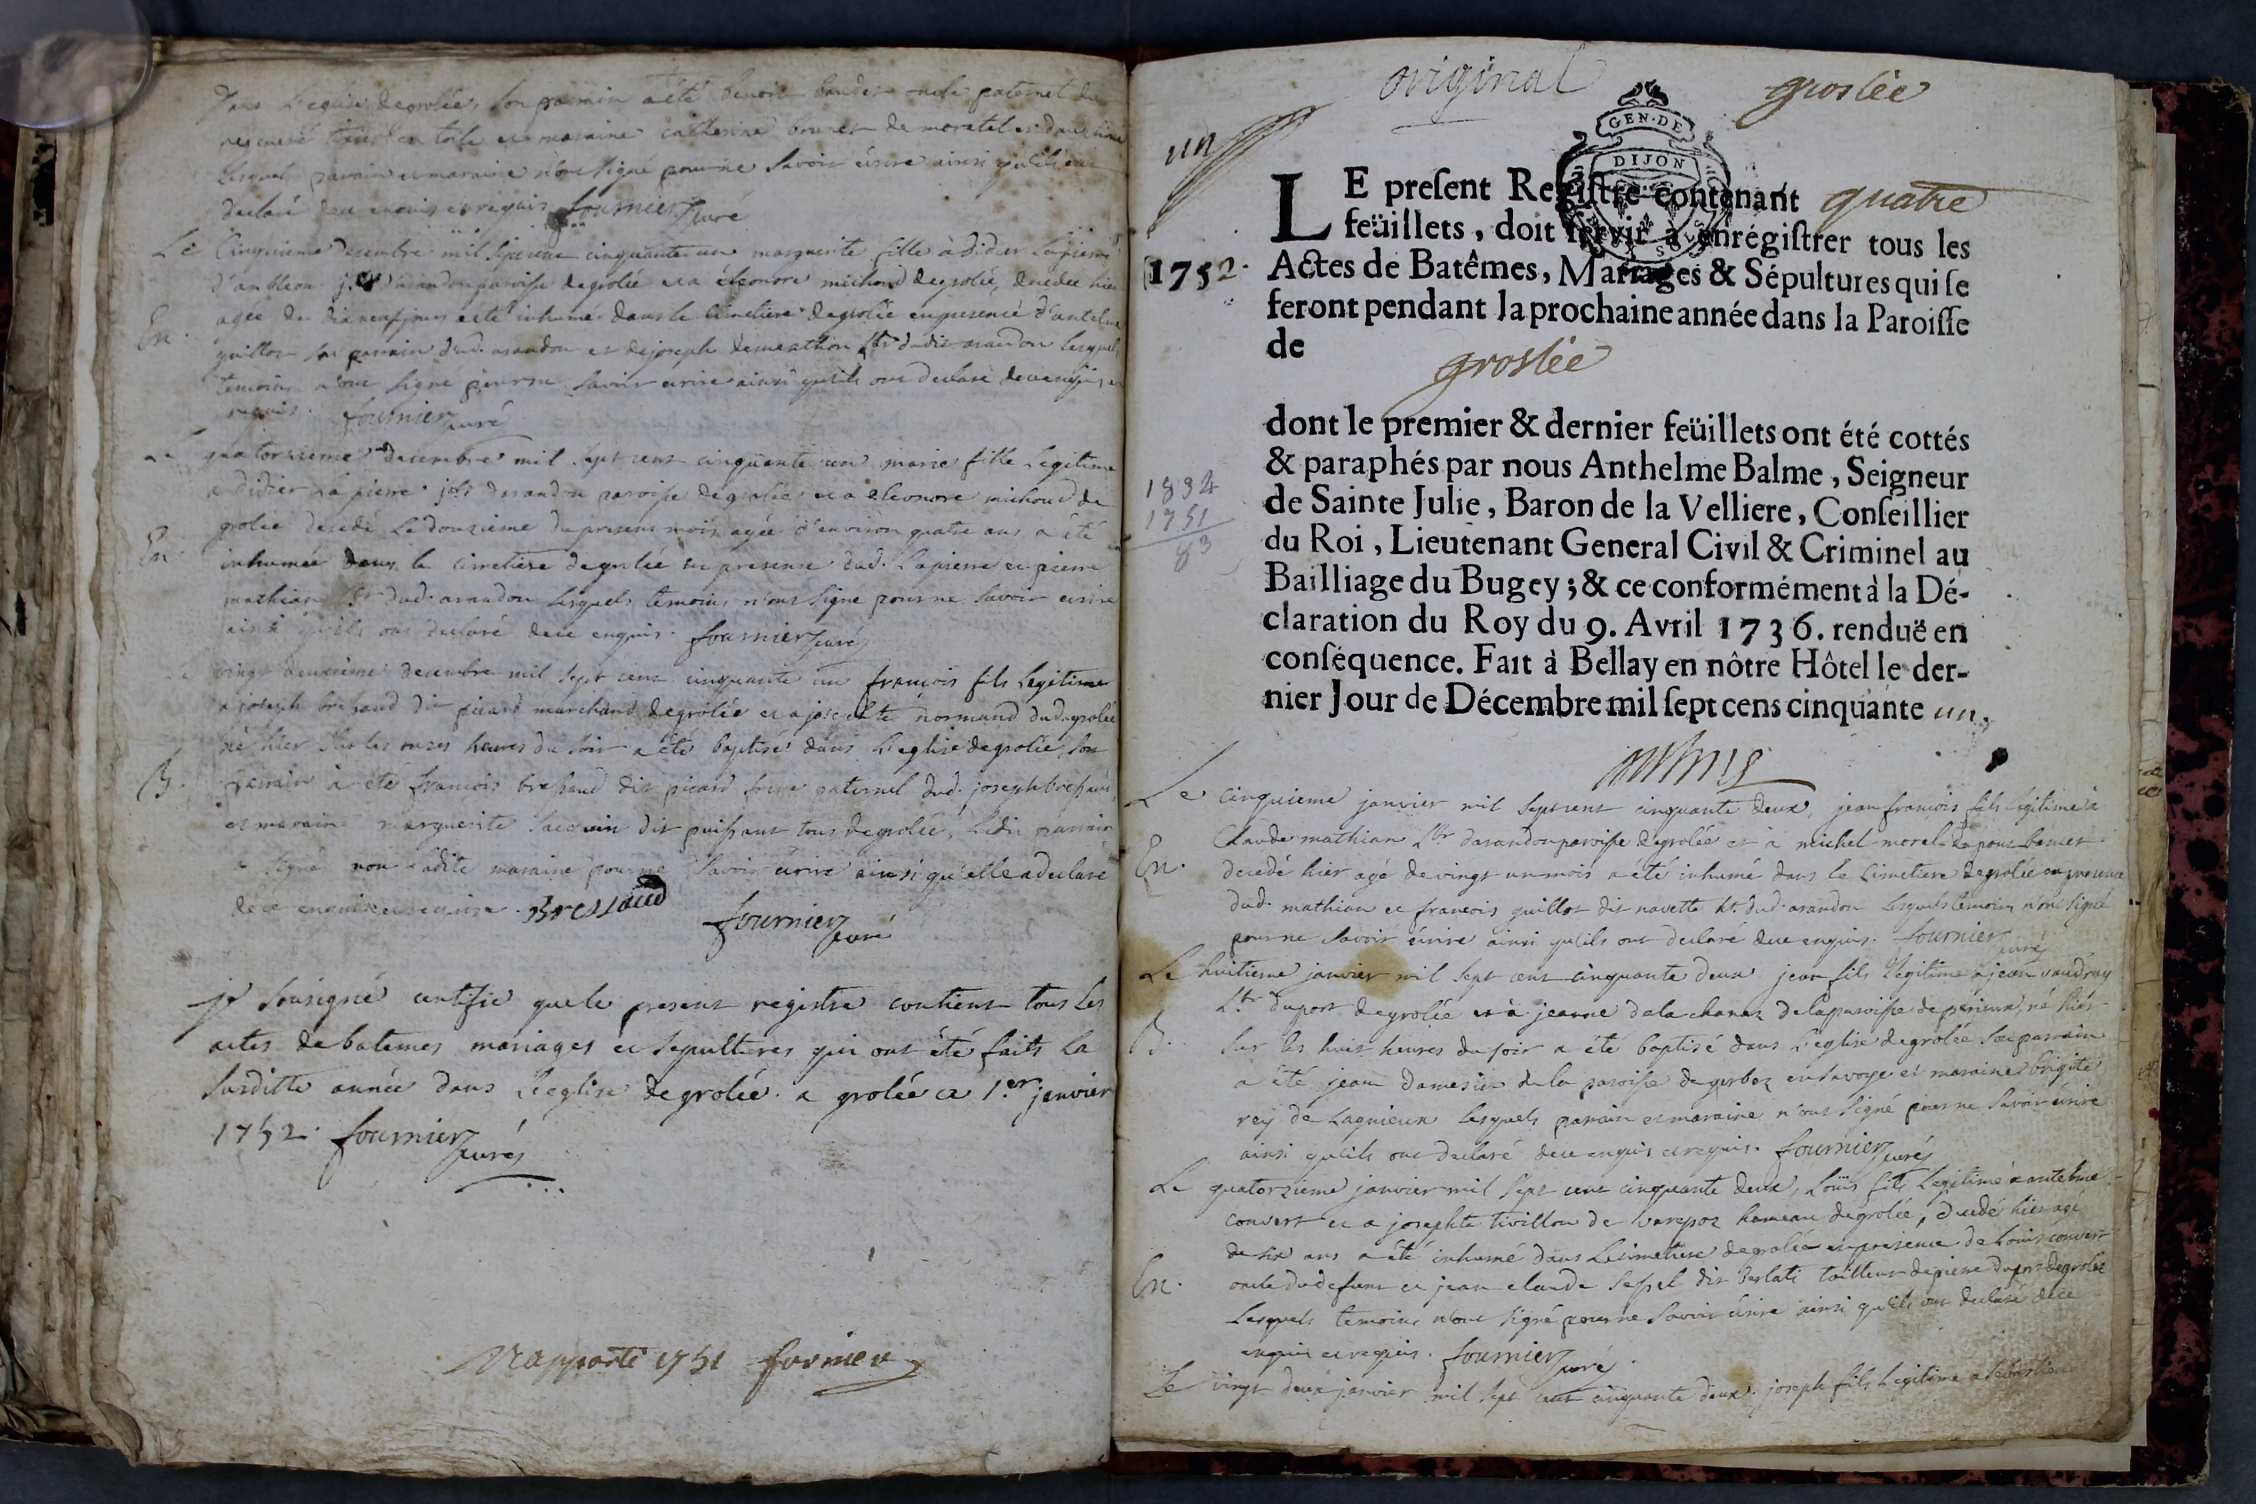 dans L'eglise de grolée, son parrain a été benoit baudet oncle paternel du
et maraine catherine de
Lesquels parain et maraine n'ont signé pour ne savoir écrire ainsi qu'ils ont
declaré de ce enquis et requis fournier curé
Le cinquieme decembre mil sept cent cinquante un marguerite fille à didier Lapierre
d'ambleon arandon paroisse de grolée et a éleonore michoud de grolée, decedée hier
agée de dix neuf jours a été inhumée dans le cimetiere de grolée en presence d'antelme
En.
guillot son parrain dud. arandon et de joseph dudit arandon lesquels
temoins n'ont signé pour ne savoir ecrire ainsi qu'ils ont declaré de ce enquis et
requis. fournier curé
Le quatorzieme decembre mil sept cent cinquante un marie fille Legitime
a didier Lapierre darandon paroisse de grolée et a eleonore michoud de
grolée decedé Le douzieme du present mois agée d'environ quatre ans a été
En
inhumée dans le cimetiere de grolée en presence dud. Lapierre et pierre
mathian dud. arandon lesquels temoins n'ont signé pour ne savoir ecrire
ainsi qu'ils ont declaré de ce enquis. fournier curé
Le vingt deuxieme decembre mil sept cent cinquante un francois fils legitime
a joseph bressaud dit picard marchand de grolée et a josephte normand dud. grolée
né hier sur les onzes heures du soir a été baptisé dans L'eglise de grolée son
B.
parrain a été francois bressaud dit picard frere paternel dud. joseph bressaud,
et maraine marguerite dit puissant tous de grolée, Ledit parrain
a signé non ladite maraine pour ne savoir écrire ainsi qu'elle a declaré
de ce enquise et requise. Bressaud
fournier curé
je sousigné certifie que le present registre contient tous les
actes de batemes mariages et sepultures qui ont été faits la
susditte année dans L'eglise de grolée. a grolée ce 1.er janvier
1752. fournier curé
rapporté 1751 fornier
original
groslée
GEN. DE
DIJON
un
LE present Registre contenant quatre
feüillets, doit servir à enrégistrer tous les
1752.
Actes de Batêmes, Mariages & Sépultures qui se
feront pendant la prochaine année dans la Paroisse
de
groslée
dont le premier & dernier feüillets ont été cottés
& paraphés par nous Anthelme Balme, Seigneur
1834
de Sainte Julie, Baron de la Velliere, Conseillier
1751
du Roi, Lieutenant General Civil & Criminel au
83
Bailliage du Bugey ; & ce conformément à la Dé-
claration du Roy du 9. Avril 1736. renduë en
conséquence. Fait à Bellay en nôtre Hôtel le der-
nier Jour de Décembre mil sept cens cinquante un.
Le cinquieme janvier mil sept cent cinquante deux, jean francois fils legitime à
Claude mathian Lbr darandon paroisse de grolée et à michel morel
En.
decedé hier agé de vingt un mois a été inhumé dans le Cimetiere de grolée en presence
dud. mathian et francois guillot dit navette dud. arandon Lesquels temoins n'ont signé
pour ne savoir écrire ainsi qu'ils ont declaré de ce enquis. fournier curé
Le huitieme janvier mil sept cent cinquante deux jean fils legitime a jean vaudray
du port de grolée et à jeanne de la chanaz de la paroisse de perieux, né hier
B.
sur les huit heures du soir a été baptisé dans L'eglise de grolée son parrain
a été jean de la paroisse de gerbaz en savoye et maraine brigite
rey de Lagnieux lesquels parrain et maraine n'ont signé pour ne savoir écrire
ainsi qu'ils ont declaré de ce enquis et requis. fournier curé
Le quatorzieme janvier mil sept cent cinquante deux, Loüis fils Legitime a antelme
convert et a josephte tivillon de varepoz hameau de grolée, decedé hier agé
de six ans a été inhumé dans Le cimetiere de grolée en presence de Louis convert
En.
oncle du defunt et jean claude dit tailleur de pierre du port de grolée
Lesquels temoins n'ont signé pour ne savoir écrire ainsi qu'ils ont declaré de ce
enquis et requis. fournier curé
Le vingt deux janvier mil sept cent cinquante deux. joseph fils Legitime a